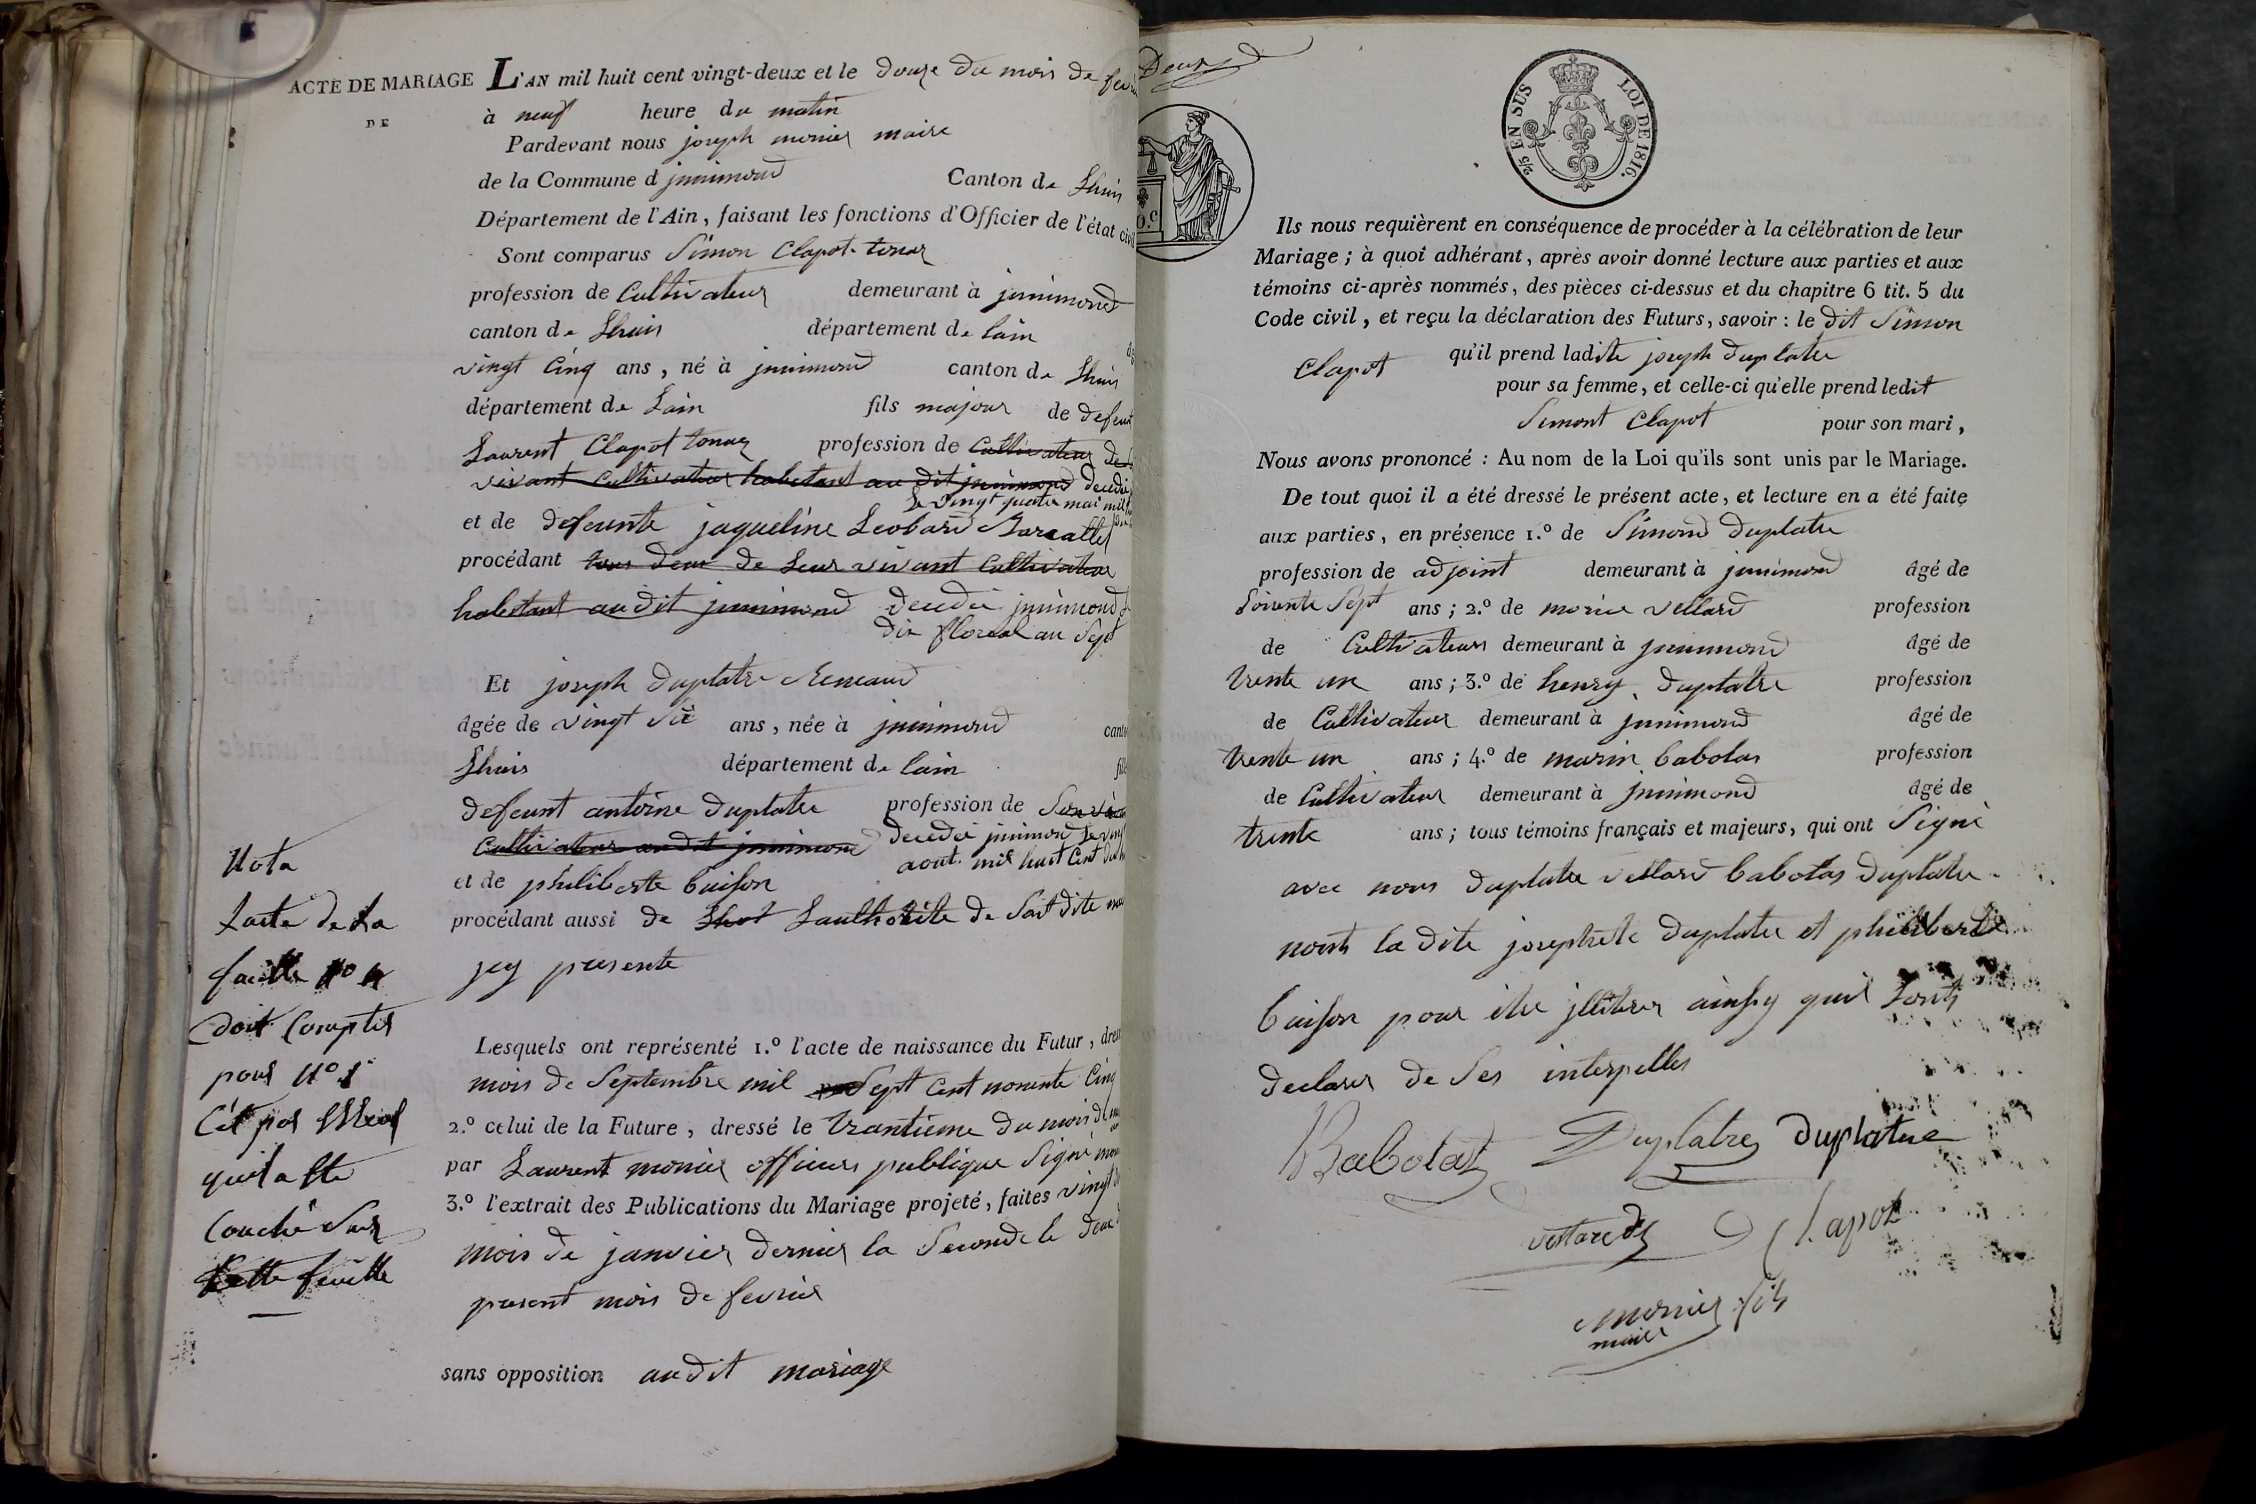 ACTE DE MARIAGE
DE
L'AN mil huit cent vingt-deux et le douze du mois de fevri
à neuf heure du matin
Pardevant nous joseph monier maire
de la Commune d jnnimond Canton de Lhuis
Département de l'Ain, faisant les fonctions d'Officier de l'état civil
Sont comparus Simon Clapot tonar
profession de Cultivateur demeurant à jnnimond
canton de Lhuis département de lain
vingt Cinq ans, né à jnnimond canton de Lhuis
département de Lain fils majour de defeunt
Laurent Clapot profession de Cultivateur de
vivant Cultivateur habetant au dit jnnimond decedé
Le vingt quatre mai mil
et de defeunte jaqueline Leobard
procédant tous deux de Leur vivant Cultivateur
habetant au dit jnnimond decedée jnnimond
dix floreal an Sept
Et joseph duplatre
âgée de vingt Six ans, née à jnnimond cant
Lhuis département de lain fill
defeunt antoine duplatre profession de Son viv
Cultivateur au dit jnnimond decedé jnnimond Le vingt
aout mil huit Cent
et de philiberte buison
procédant aussi de Lauthorite de Sait dite
jcy presente
Lesquels ont représenté 1.º l'acte de naissance du Futur, dres
mois de Septembre mil Sept Cent nonente Cinq
2.º celui de la Future, dressé le trantieme du mois de
par Laurent monier officier publique Signé
3.º l'extrait des Publications du Mariage projeté, faites vingt
mois de janvier dernier la Seconde le deux
present mois de fevrier
sans opposition au dit mariage
Nota
Lacte de La
feuille Nº 4
doit Compter
pour Nº 1
C'ét par
quil a été
Couché Sur
Cette feuille
Deux
2/5 EN SUS LOI DE 1816.
Ils nous requièrent en conséquence de procéder à la célébration de leur
Mariage; à quoi adhérant, après avoir donné lecture aux parties et aux
témoins ci-après nommés, des pièces ci-dessus et du chapitre 6 tit. 5 du
Code civil, et reçu la déclaration des Futurs, savoir: le dit Simon
Clapot qu'il prend ladite joseph duplatre
pour sa femme, et celle-ci qu'elle prend ledit
Simont Clapot pour son mari,
Nous avons prononcé: Au nom de la Loi qu'ils sont unis par le Mariage.
De tout quoi il a été dressé le présent acte, et lecture en a été faite
aux parties, en présence 1.º de Simond duplatre
profession de adjoint demeurant à jnnimond âgé de
Soixente Sept ans; 2.º de vellard profession
de Cultivateur demeurant à jnnimond âgé de
trente un ans; 3.º de henry duplatre profession
de Cultivateur demeurant à jnnimond âgé de
trente un ans; 4.º de marin babolas profession
de Cultivateur demeurant à jnnimond âgé de
trente ans; tous témoins français et majeurs, qui ont Signé
avec nous duplatre vellard babolas duplatre
nonts la dite josephete duplatre et philiberte
buison pour etre jlliterer ainsy quil Lonts
declarer de Ses interpelles
Babolat Duplatre duplatre
vellard Clapot
monier fils
maire